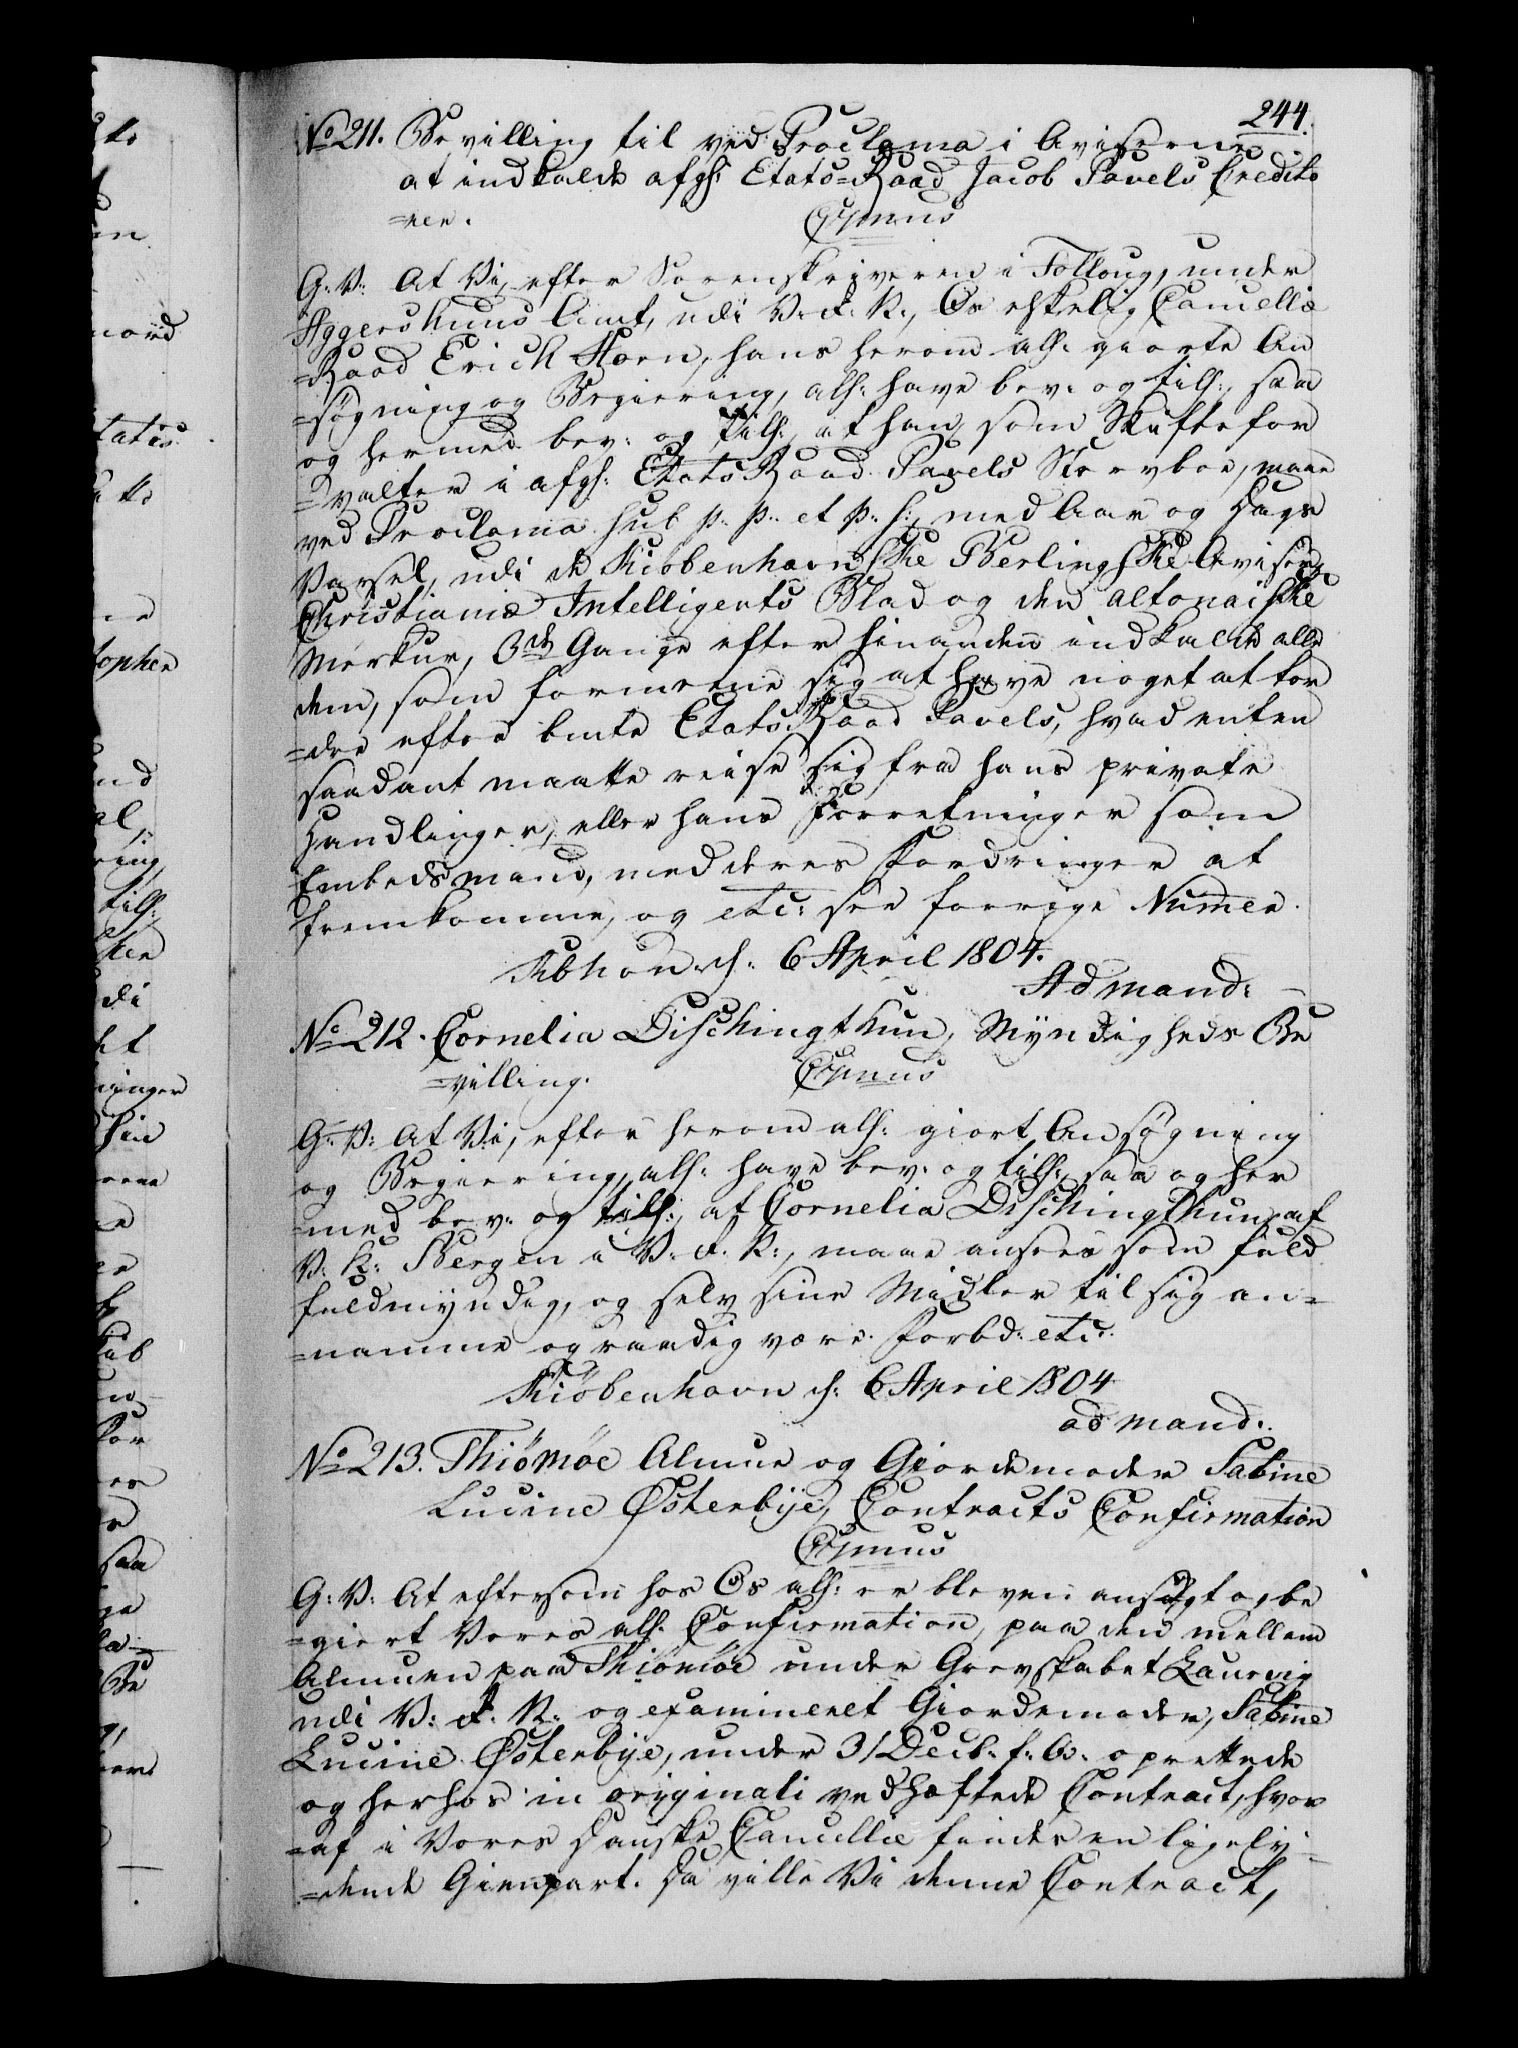 244.
No 211. Bevilling til ved Proclama i Aviserne
at indkalde afgl: Etats-Raad Jacob Pavels Credito
=rer. C7mus
G: V: At Vi, efter Sorenskriveren i Folloug, under
Aggershuus Amt, udi V: R: N:, Os elskelig Cancellie
=Raad Erick Horn, hans herom all: giorte An
=søgning og Begiering, all: have bev: og till:, saa
og hermed bev: og till:, at han, som Skiftefor
=valter i afgl: Etats Raad Pavels Stervboe, maae
ved Proclama sub p: p: et p: s:, med Aar og Dags
Varsel, udi de Kiøbenhavnske Berlingske Aviser,
Christianiæ Intelligents Blad og den altonaiske
Merkur, 3de Gange efter hinanden indkalde alle
dem, som formeene sig at have noget at for
=dre efter bmte Etats Raad Pavels, hvad enten
saadant maatte reise sig fra hans private
Handlinger, eller hans Forretninger som
Embedsmand, med deres Fordringer at
fremkomme, og etc: see forrige Numer.
Kbhavn d: 6 April 1804.
Ad mand:
No 212. Cornelia Dischingthun, Myndigheds Be
=villing. C7mus
G: V: At Vi, efter herom all: giort Ansøgning
og Begiering, all: have bev: og till:, saa og her
=med bev: og till:, at Cornelia Dischingthun, af
V: K: Bergen i V: R: N:, maae ansees som fuld
fuldmyndig, og selv sine Midler til sig an=
=namme og raadig være. Forbd: etc:
Kiøbenhavn d: 6 April 1804
ad mand:
No 213. Thiömöe Almue og Giordemoder Sabine
Lucine Østerbye, Contracts Confirmation
C7mus
G: V: At eftersom hos Os all: er bleven ansøgt og be
=giert Vores all: Confirmation, paa den mellem
Almuen paa Thiömöe under Grevskabet Laurvig
udi V: R: N: og examineret Giordemoder, Sabine
Lucine Østerbye, under 31 Decb: f: A: oprettede
og herhos in originali vedhæftede Contract, hvor
=af i Vores Danske Cancellie findes en ligely=
=dende Gienpart. Da ville Vi denne Contract,